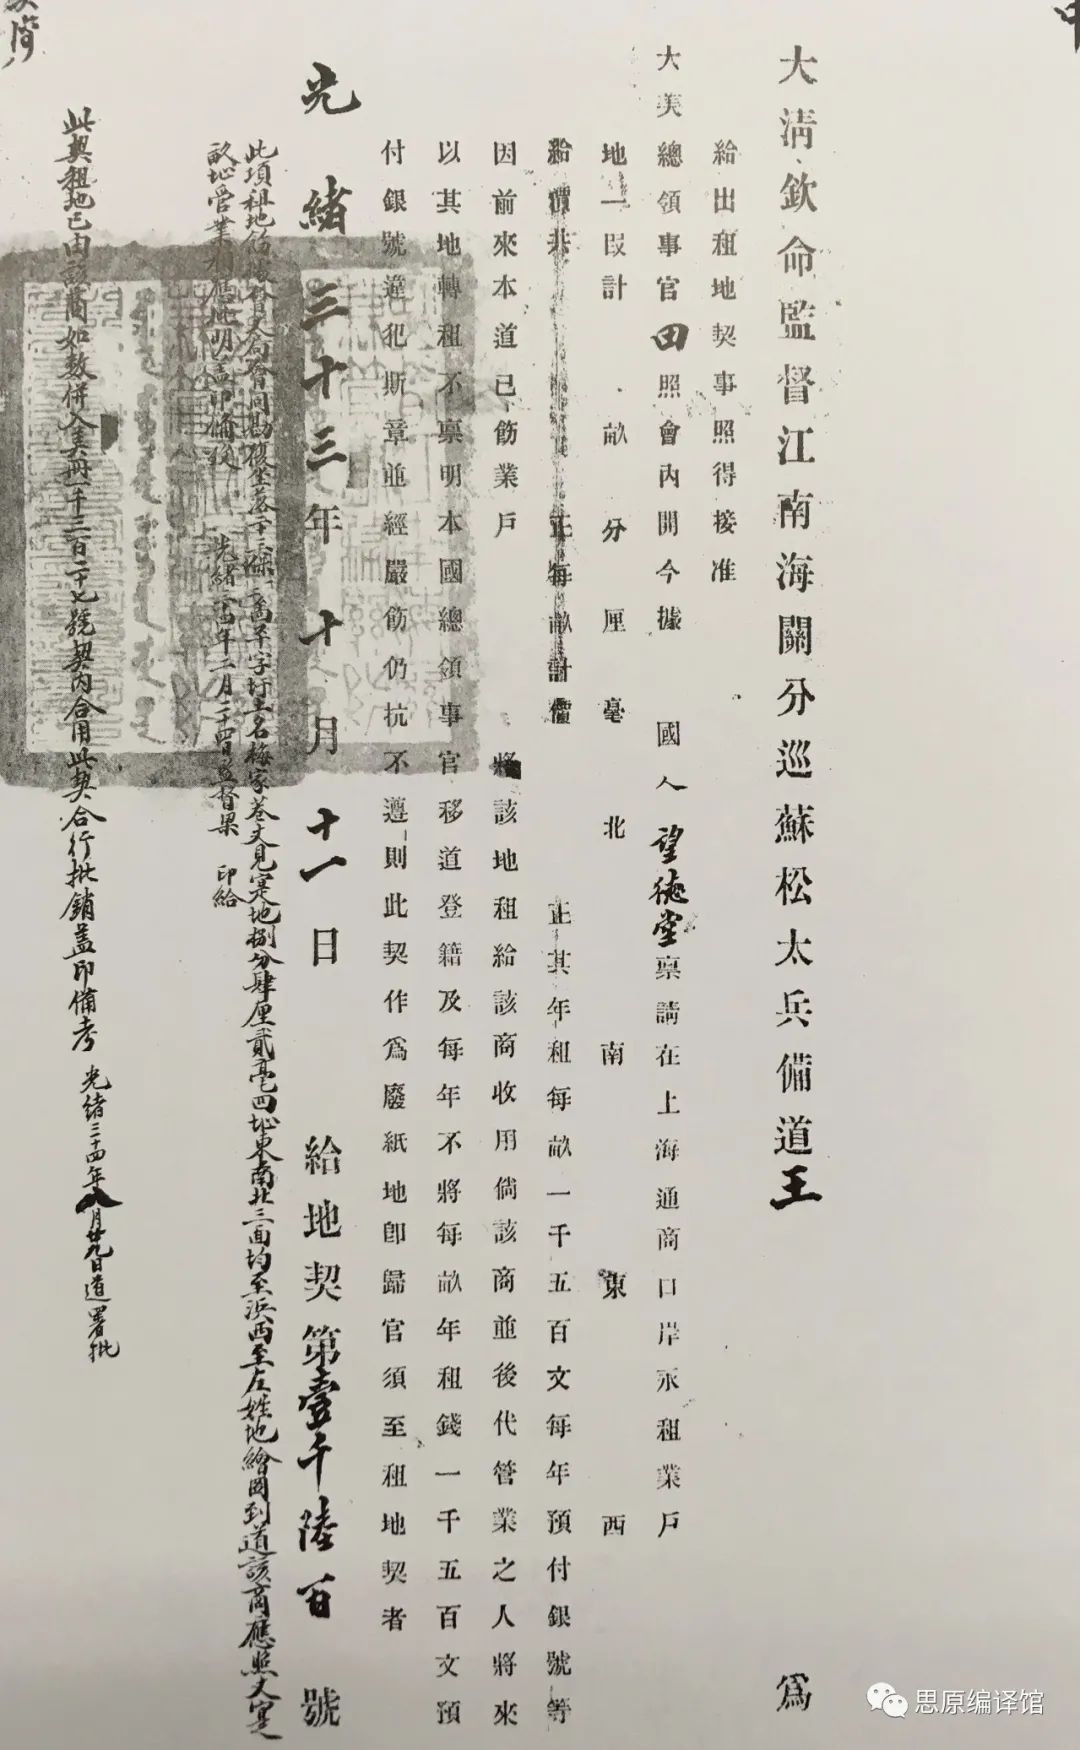 大清欽命監督江南海關分巡蘇松太兵備道王 爲
給出租地契事照得接准
大美總領事官田照會內開今據 國人望德堂稟請在上海通商口岸永租業戶
地一段計 畝 分 厘 毫 北 南 東 西
給價共 正每畝計價 正其年租每畝一千五百文每年預付銀號等
因前來本道已飭業戶 將該地租給該商收用倘該商並後代管業之人將來
以其地轉租不稟明本國總領事官移道登籍及每年不將每畝年租錢一千五百文預
付銀號違犯斯章並經嚴飭仍抗不遵則此契作爲廢紙地卽歸官須至租地契者
光緒三十三年十月十一日 給地契第壹千陸百 號
此項租地飭據會丈局會同勘復坐落二十三保 啚羊字圩土名梅家巷丈見寔地捌分肆厘貳毫四址東南北三面均至浜西至左姓地繪圖到道該商應照丈寔
畝地管業相應批明蓋印備考 光緒三十四年二月二十四日監督梁 印給
此契租地已由該商如數併入美冊一千三百二十七號契內合用此契合行批銷蓋印備考 光緒三十四年八月廿九日道署批
思原编译馆